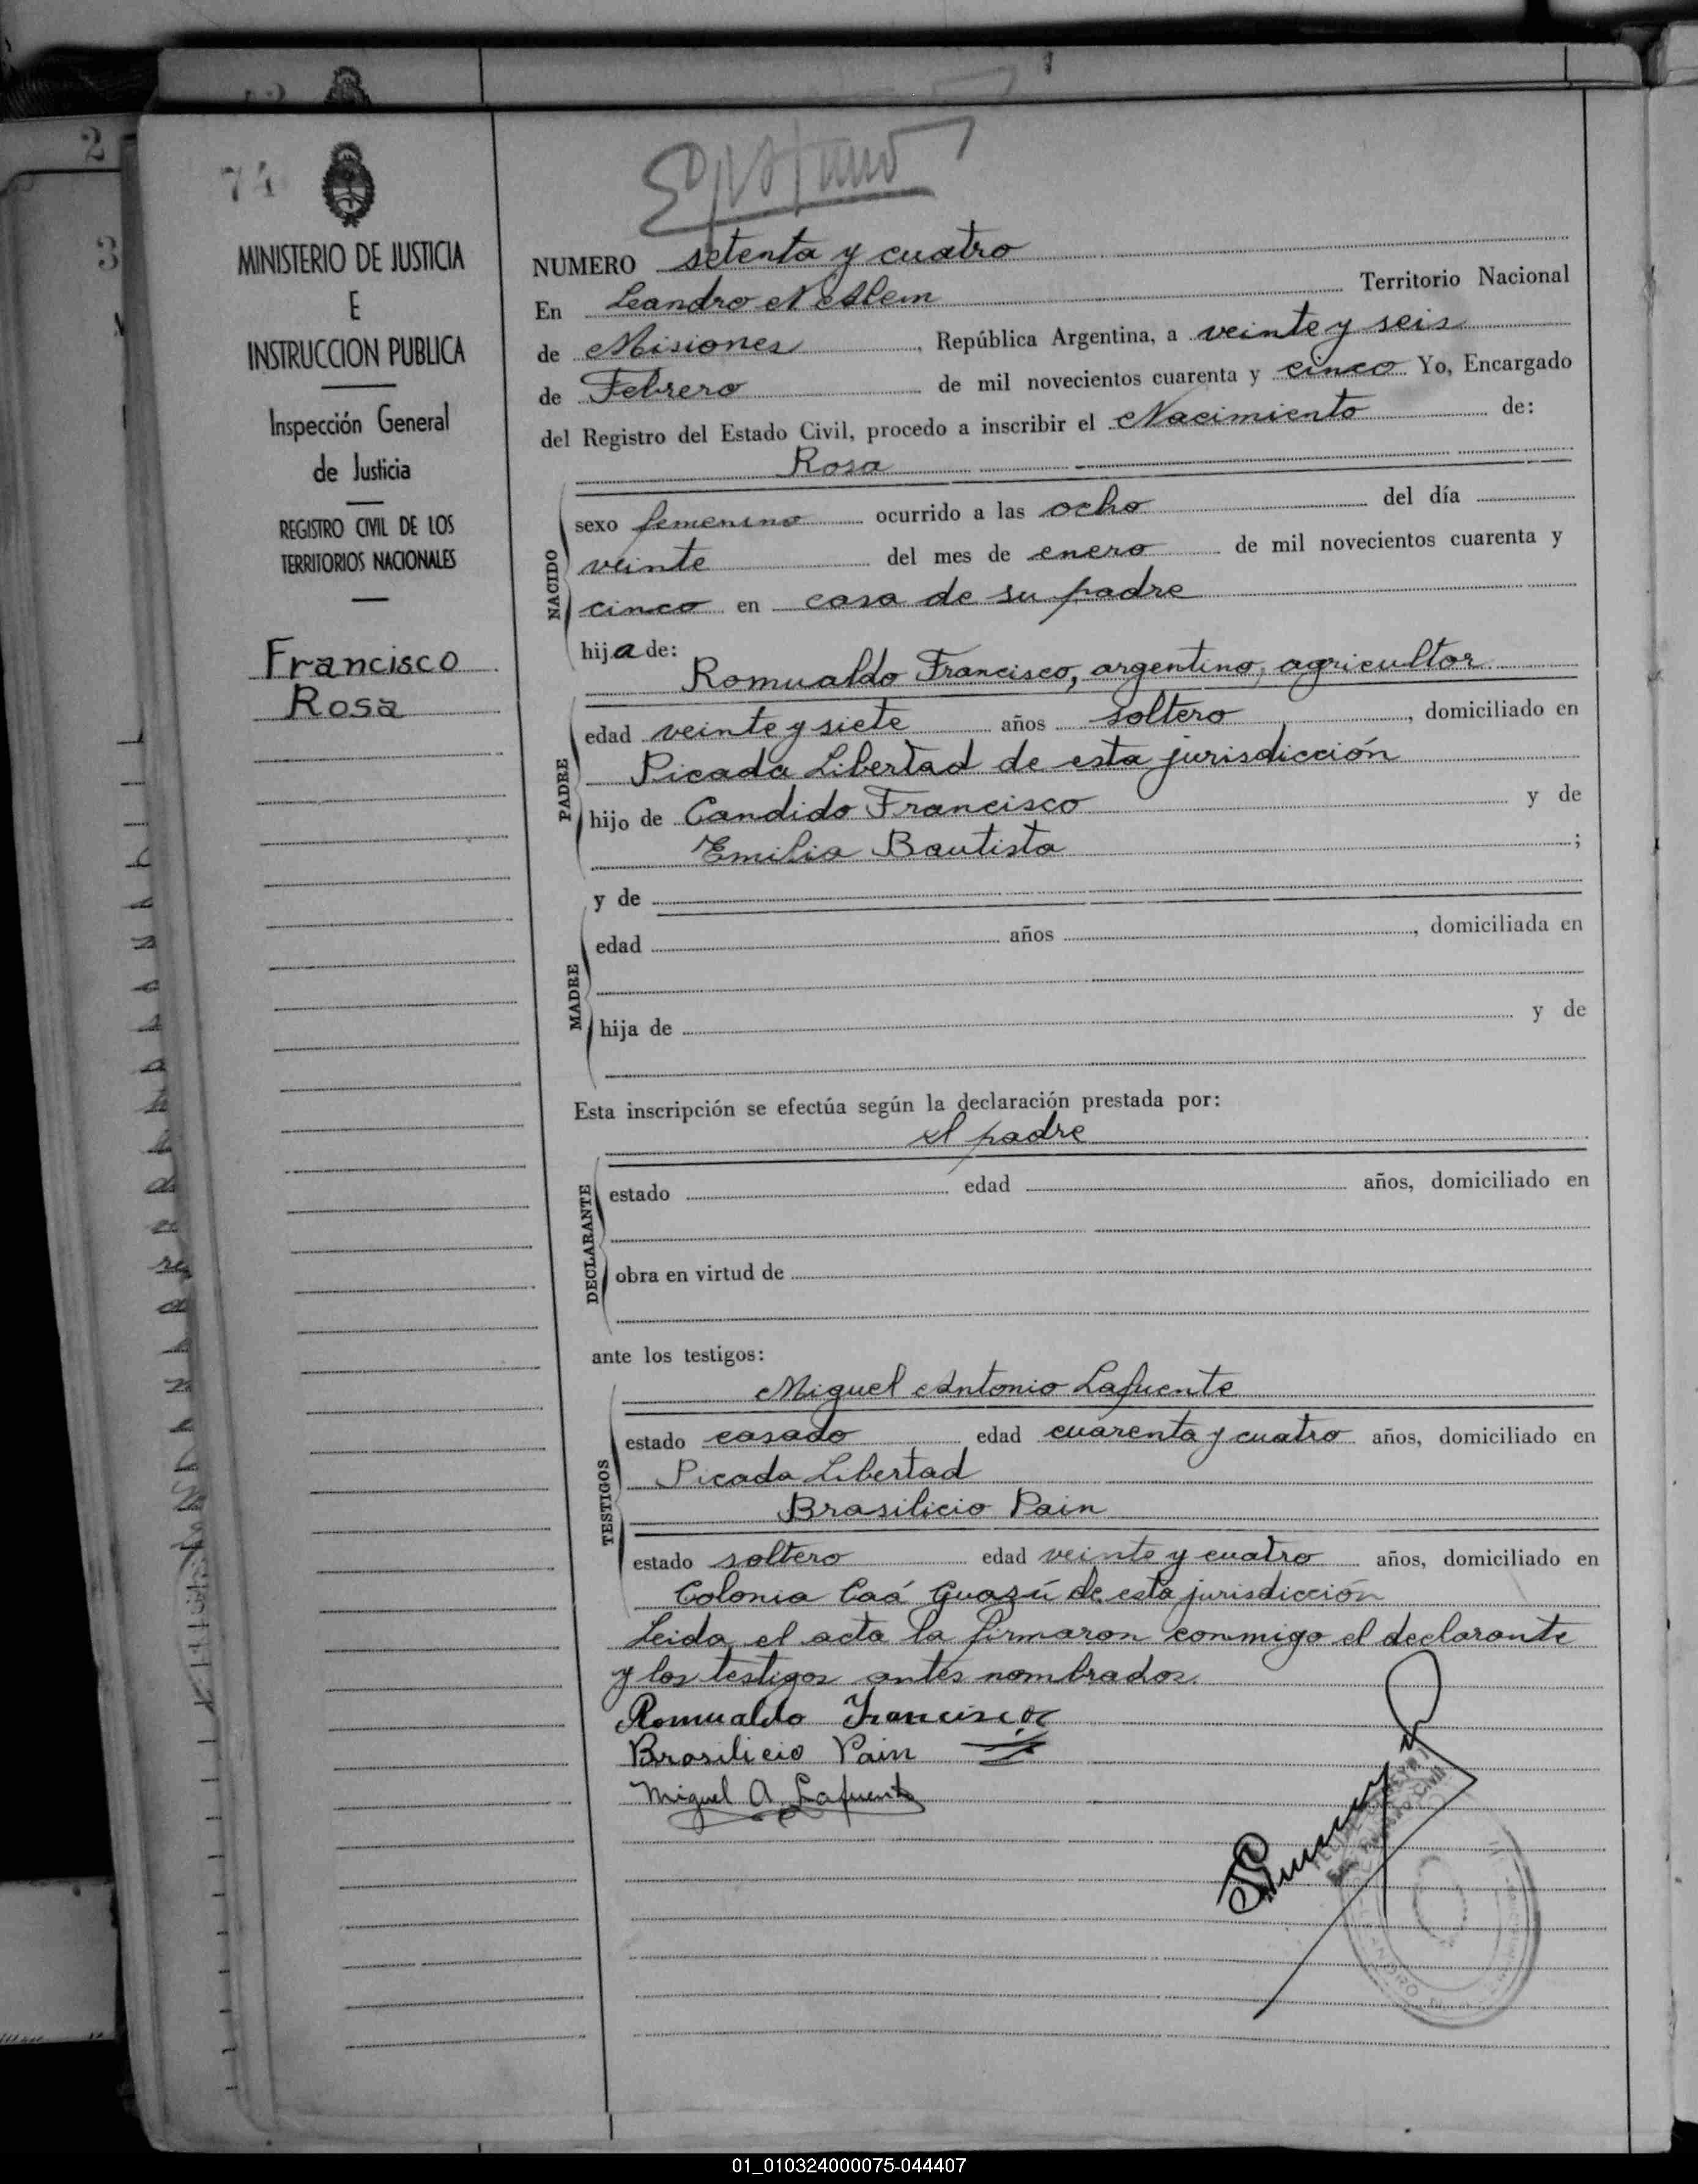 74
MINISTERIO DE JUSTICIA
E
INSTRUCCION PUBLICA
Inspección General
de Justicia
REGISTRO CIVIL DE LOS
TERRITORIOS NACIONALES
Francisco
Rosa
NUMERO setenta y cuatro
En Leandro N Alem Territorio Nacional
de Misiones, República Argentina, a veinte y seis
de Febrero de mil novecientos cuarenta y cinco Yo, Encargado
del Registro del Estado Civil, procedo a inscribir el Nacimiento de:
Rosa
NACIDO
sexo femenino ocurrido a las ocho del día
veinte del mes de enero de mil novecientos cuarenta y
cinco en casa de su padre
hija de:
Romualdo Francisco, argentino, agricultor
PADRE
edad veinte y siete años soltero, domiciliado en
Picada Libertad de esta jurisdicción
hijo de Candido Francisco y de
Emilia Bautista;
y de
MADRE
edad años, domiciliada en
hija de y de
Esta inscripción se efectúa según la declaración prestada por:
el padre
DECLARANTE
estado edad años, domiciliado en
obra en virtud de
ante los testigos:
Miguel Antonio Lafuente
TESTIGOS
estado casado edad cuarenta y cuatro años, domiciliado en
Picada Libertad
Brasilicio Pain
estado soltero edad veinte y cuatro años, domiciliado en
Colonia Caá Guazú de esta jurisdicción
Leida el acta la firmaron conmigo el declarante
y los testigos antes nombrados.
Romualdo Francisco
Brasilicio Pain
Miguel A. Lafuente
01_010324000075-044407